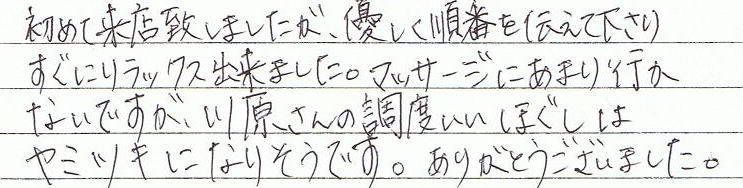 初めて来店致しましたが、優しく順番を伝えて下さり
すぐにリラックス出来ました。マッサージにあまり行か
ないですが、川原さんの調度いいほぐしは
ヤミツキになりそうです。ありがとうございました。